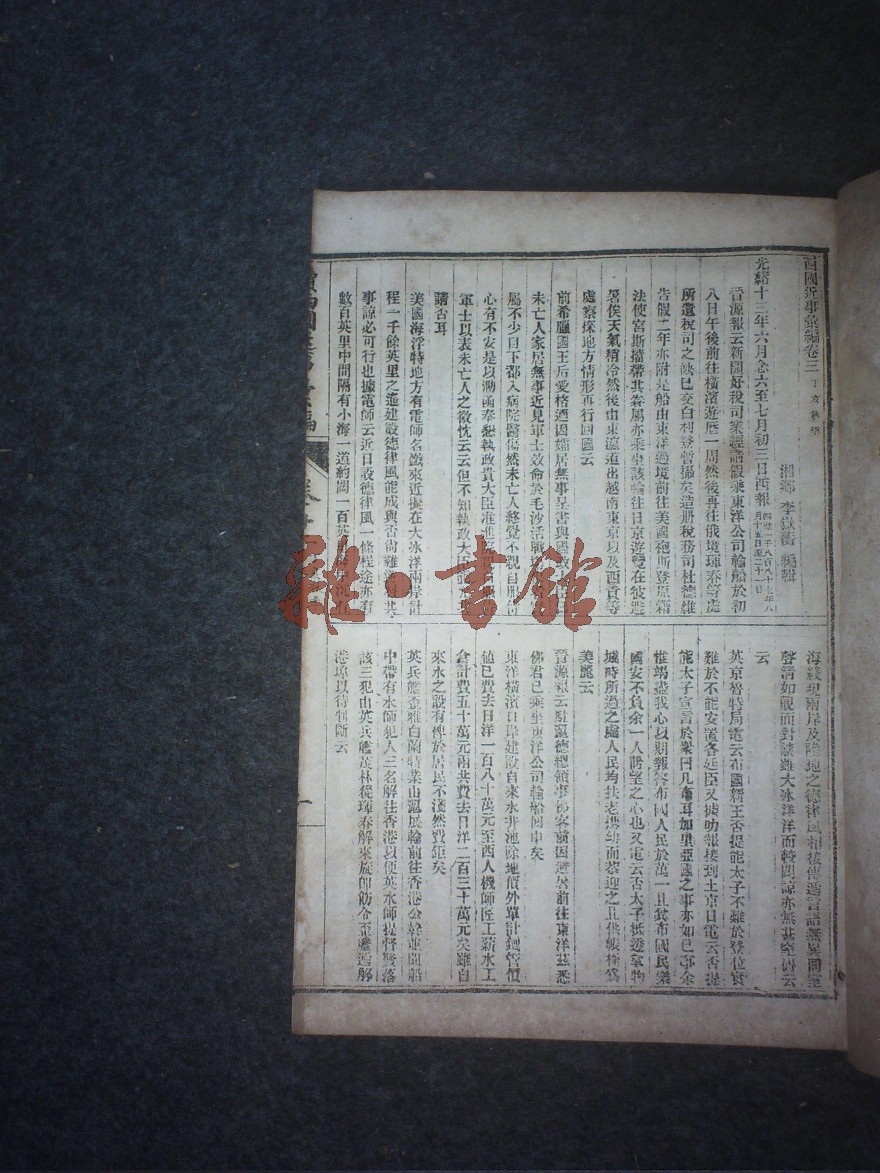 西國近事彙編卷三
湘鄉 李嶽蘅 編輯
光緒十三年六月念六至七月初三日西報 西歷一千八百八十七年八月十五日至二十一日
晉源報云新關好稅司家經諸報乘東洋公司輪船於初
八日午後前往橫濱遊歷一周然後再往俄境琿春等處
所遺稅司之缺已交白利登暫攝矣造册稅務司杜德維
告假二年亦附是船由東洋過境前往美國袍斯登原霜
法使宮斯擋帶其眷屬亦乘坐該輪往日京遊
在彼避
暑俟天氣稍冷然後由東瀛道出越南東京以及西貢等
處察探地方情形再行回國云
前希臘國王后愛格
因孀居無事呈書與國
未亡人家居無事近見軍士效命於毛沙活戰
屬不少目下都入病院醫傷然未亡人終覺不親自
心有不安是以泐函奉
執政貴大臣准
軍士以表未亡人之微忱云云但不知執政大臣
請否耳
美國海浮特地方有電師名
來近擬在大冰洋兩岸計
程一千餘英里之遙建設德律風能成與否尚難
其
事諒必可行也據電師云近日設德律風一條程途亦有
數百英里中間隔有小海一道約闊一百英
海綫現兩岸及陸地之德律風相接傳遞言語無異同室
聲清如覿面對談雖大冰洋洋面較闊諒亦無甚窒礙云
云
英京魯特局電云布國新王否提能太子不難於登位實
難於不能安置各廷臣又
叻報接到土京日電云否提
能太子宣言於眾曰凡布耳加里亞國之事亦如已事余
惟竭盡我心以期報答布國人民於萬一且冀布國民樂
國安不負余一人所望之心也又電云否太子抵透拿物
城時所過之處人民均扶老攜幼而
迎之且供張極為
美麗云
晉源報云駐滬德總領事佛客前因避暑前往東洋茲悉
佛君已乘坐東洋公司輪船回申矣
東洋橫濱口岸建設自來水井池除地價外單計鐵管價
值已費去日洋一百八十萬元至西人機師匠工薪水工
食計費五十萬元兩共費去日洋二百三十萬元矣雖自
來水之設有裨於居民不淺然費鉅矣
英兵艦金雅白蘭特業由滬展輪前往香港公幹並聞船
中帶有水師犯人三名解往香港以便英水師提督發落
該三犯由英兵艦茂林從琿春解來旋卽飭令
艦過解
港埠以待判斷云
一
雜·書館